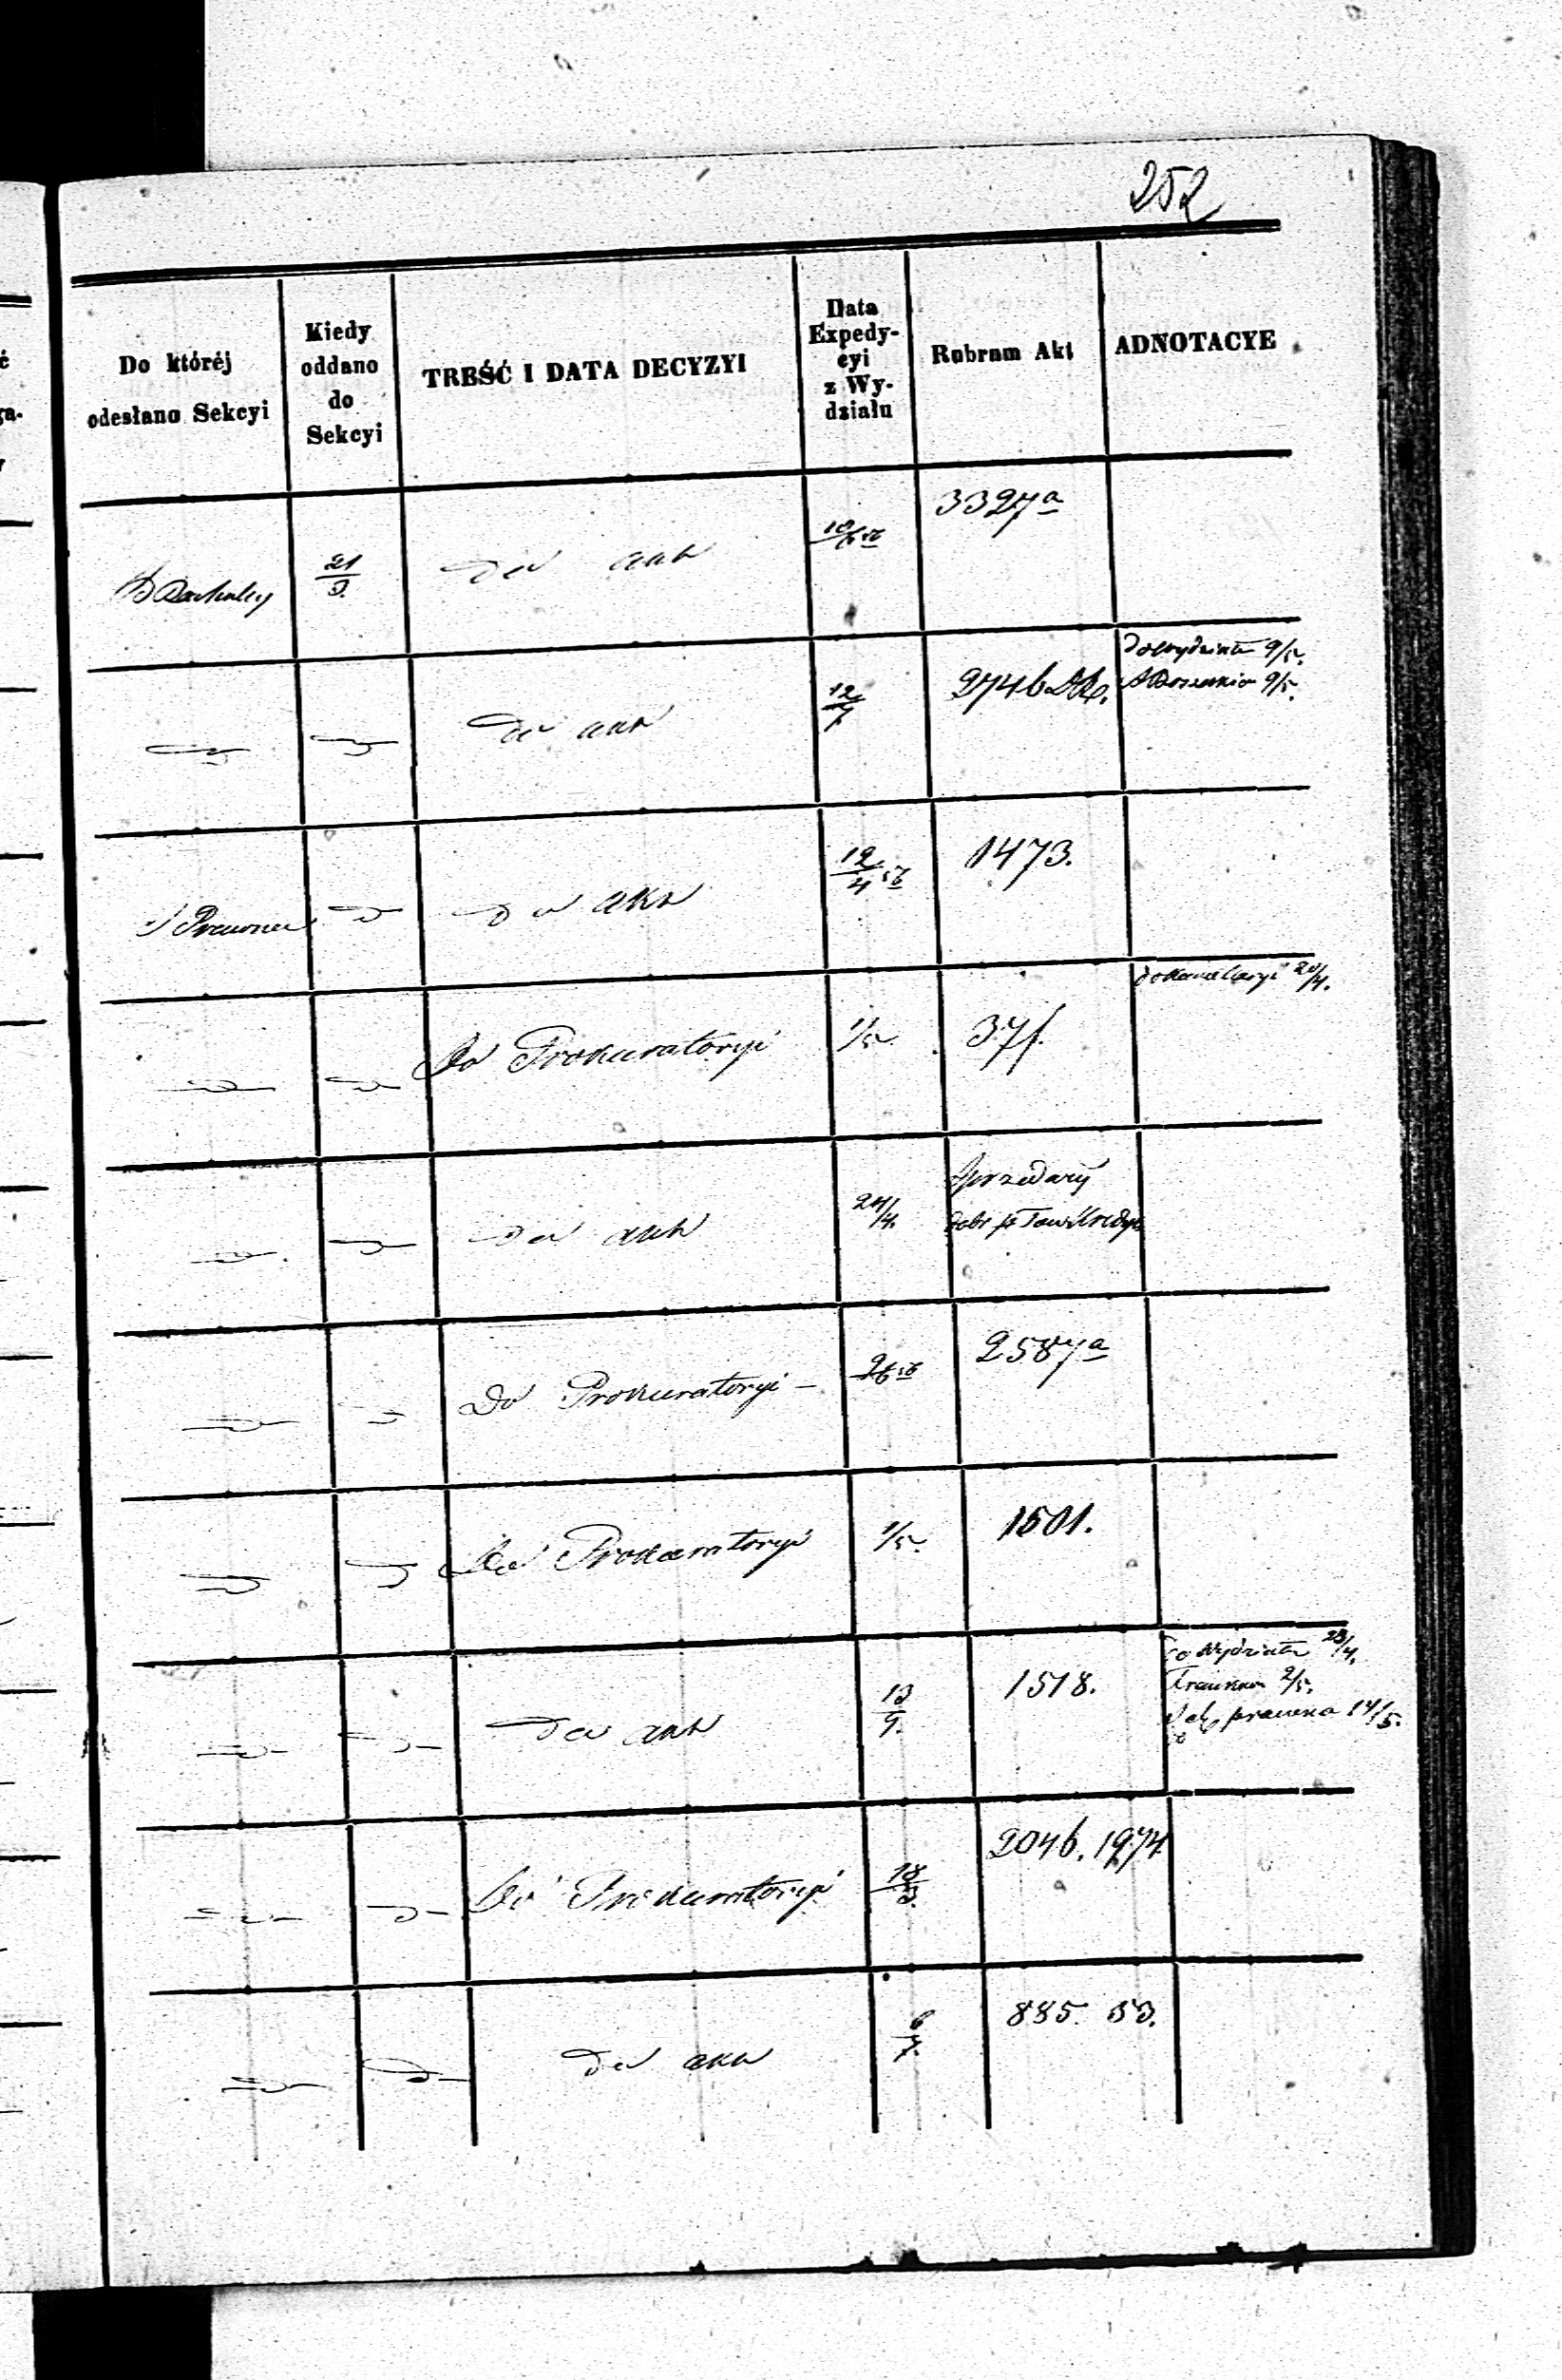 252
Do któréj odesłano Sekcyi
Kiedy oddano do Sekcyi
TREŚĆ I DATA DECYZYI
Data Expedycyi z Wydziału
Rubrum Akt
ADNOTACYE
21/3. do akt 3327a
do akt 12/7 2746
do Wydziału 9/5.
9/5.
S Prawna do akt 12/4 56 1473.
Do Prokuratoryi 1/5. 37f.
do Kancelaryi 20/4.
do akt 24/4. Sprzedaży
dobr
Do Prokuratoryi – 2587a
Do Prokuratoryi 1/5. 1501.
do akt 13/9. 1518.
do Wydziału 23/4.
2/5.
prawna 14/5.
Do Prokuratoryi 18/3. 2046. 1974
do akt 6/7. 885. 53.